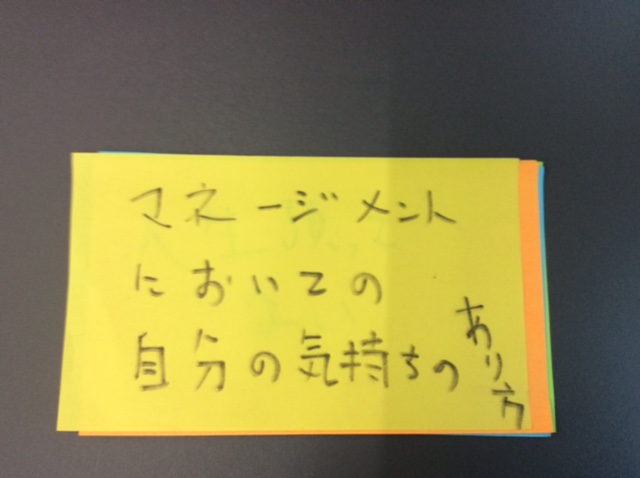 マネージメント
においての
自分の気持ちの
あり方